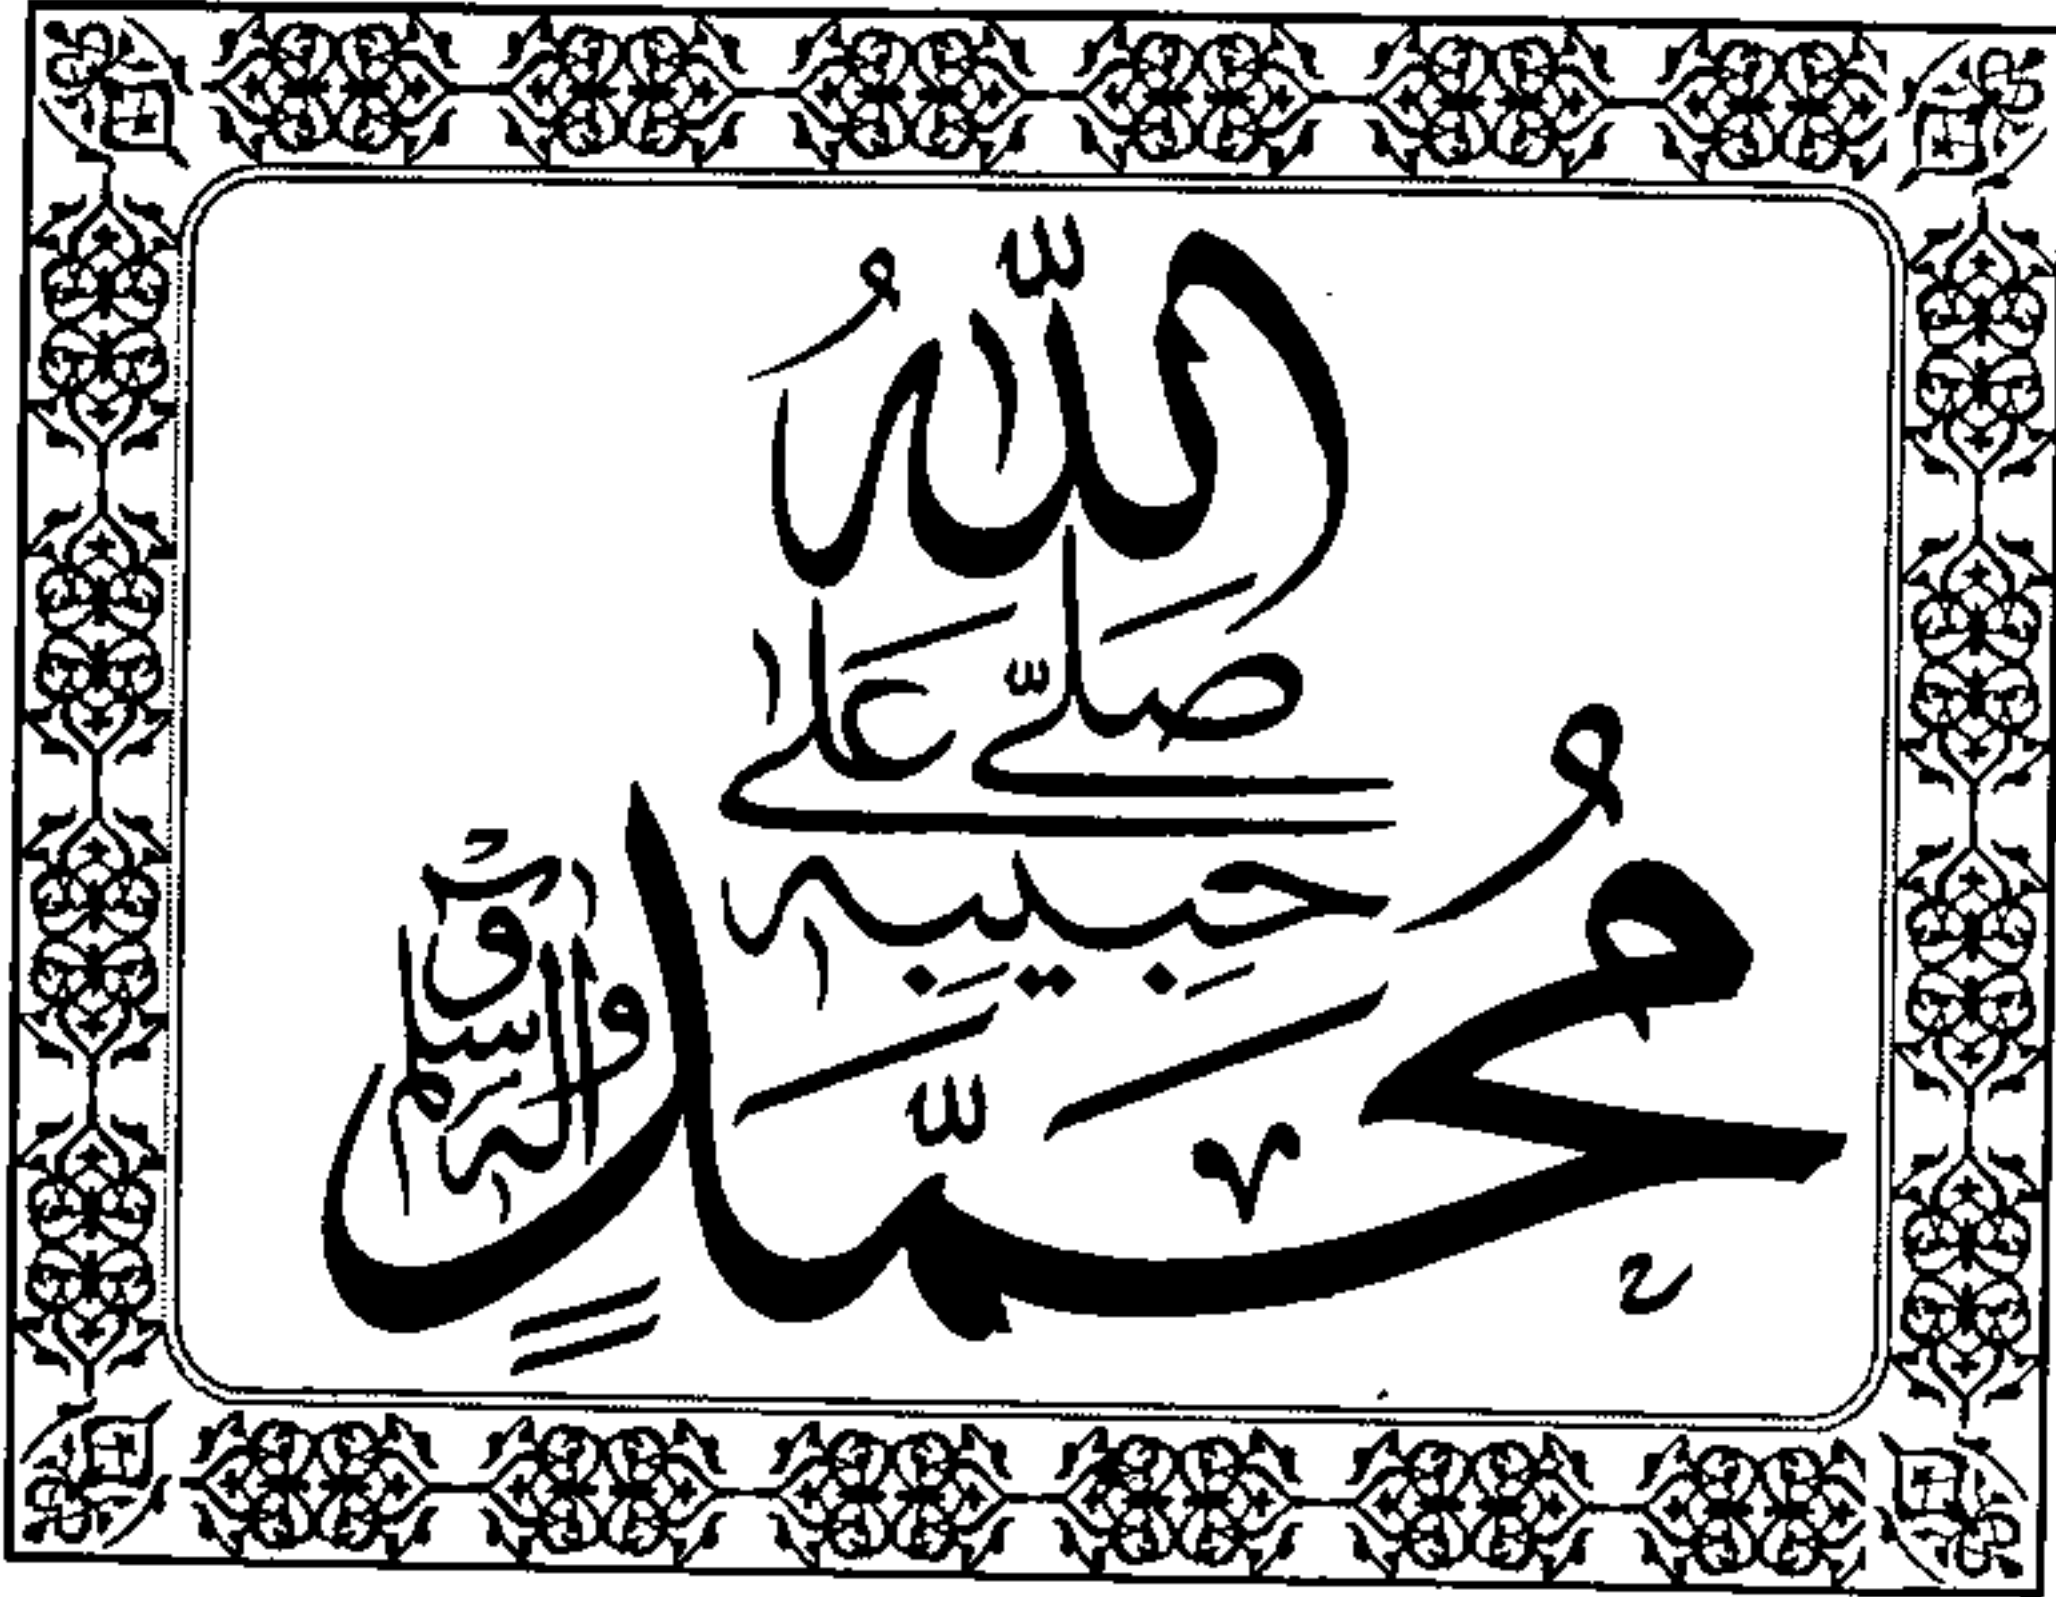 اللّٰهُ
صَلَّى عَلٰى
حَبِيبِهٖ
مُحَمَّدٍ
وَاٰلِهٖ وَسلم